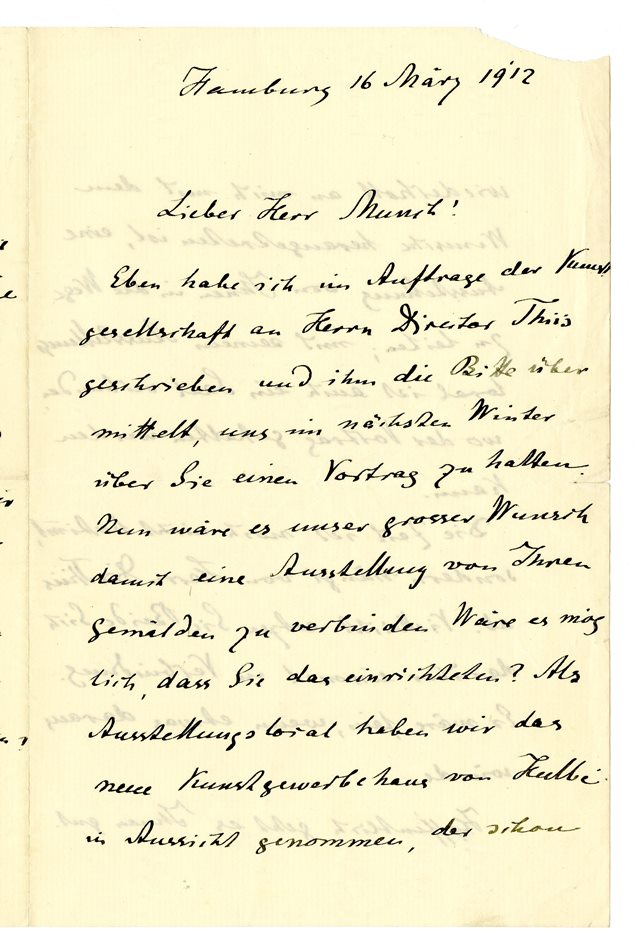 Hamburg 16 März 1912
Lieber Herr Munch!
Eben habe ich im Auftrage der Kunst
gesellschaft an Herrn Director Thiis
geschrieben und ihm die Bitte über
mittelt, uns im nächsten Winter
über Sie einen Vortrag zu halten.
Nun wäre es unser grosser Wunsch
damit eine Ausstellung von Ihren
Gemälden zu verbinden Wäre es mög
lich, dass Sie das einrichteten? Als
Ausstellungslocal haben wir das
neue Kunstgewerbehaus von Hulbe
in Aussicht genommen, der schon